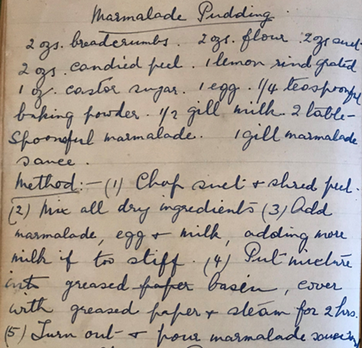 Marmalade Pudding.
2 ozs. breadcrumbs. 2 ozs. flour 2 ozs suet
2 ozs. candied peel. 1 lemon rind grated.
1 oz. castor sugar. 1 egg. 1/4 teaspoonful
baking powder. 1/2 gill milk. 2 table-
spoonsful marmalade. 1 gill marmalade
sauce.
Method:- (1) Chop suet + shred peel.
(2) Mix all dry ingredients (3) Add
marmalade, egg + milk, adding more
milk if too stiff. (4) Put mixture
into greased paper basin, cover
with greased paper + steam for 2 hrs.
(5) Turn out + pour marmalade